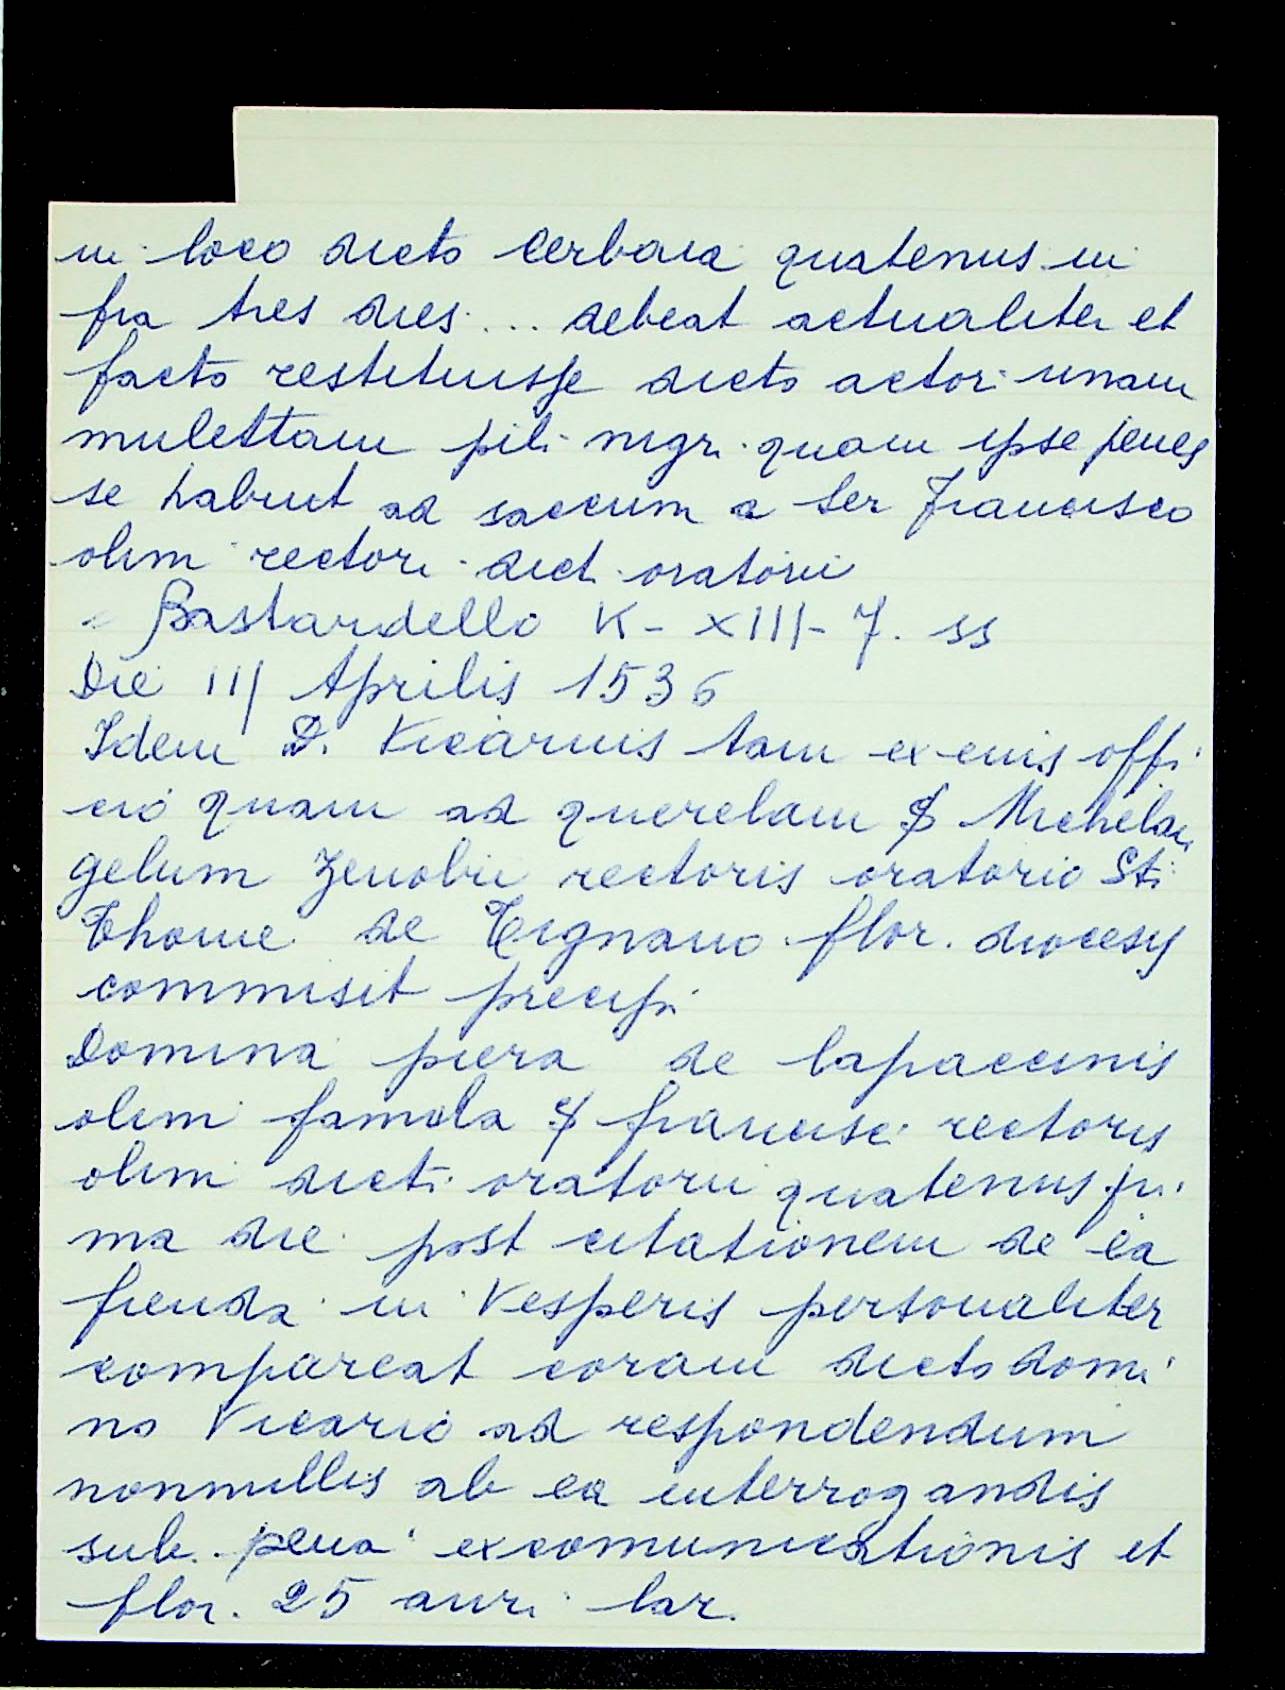 in loco dicto Cerbaia quatenus in
fra tres dies ... debeat actualiter et
facto restituisse dicto actori unam
mulettam pili nigri quam ipse penes
se habuit ad saccum a Ser Francisco
olim rectori dicti oratorii
Bastardello K - XIII - 7. ss
Die III Aprilis 1536
Idem D. Vicarius tam ex eius offi
cio quam ad querelam S Michelan
gelum Zenobii rectoris oratorio Sti
Thome de Tignano flor. diocesis
commisit precipi
Domina piera de lapaccinis
olim famula S francisci rectoris
olim dicti oratorii quatenus pri
ma die post citationem de ea
fienda in Vesperis personaliter
compareat coram dicto domi
no Vicario ad respondendum
nonnullis ab ea interrogandis
sub pena excomunicationis et
flor. 25 auri lar.